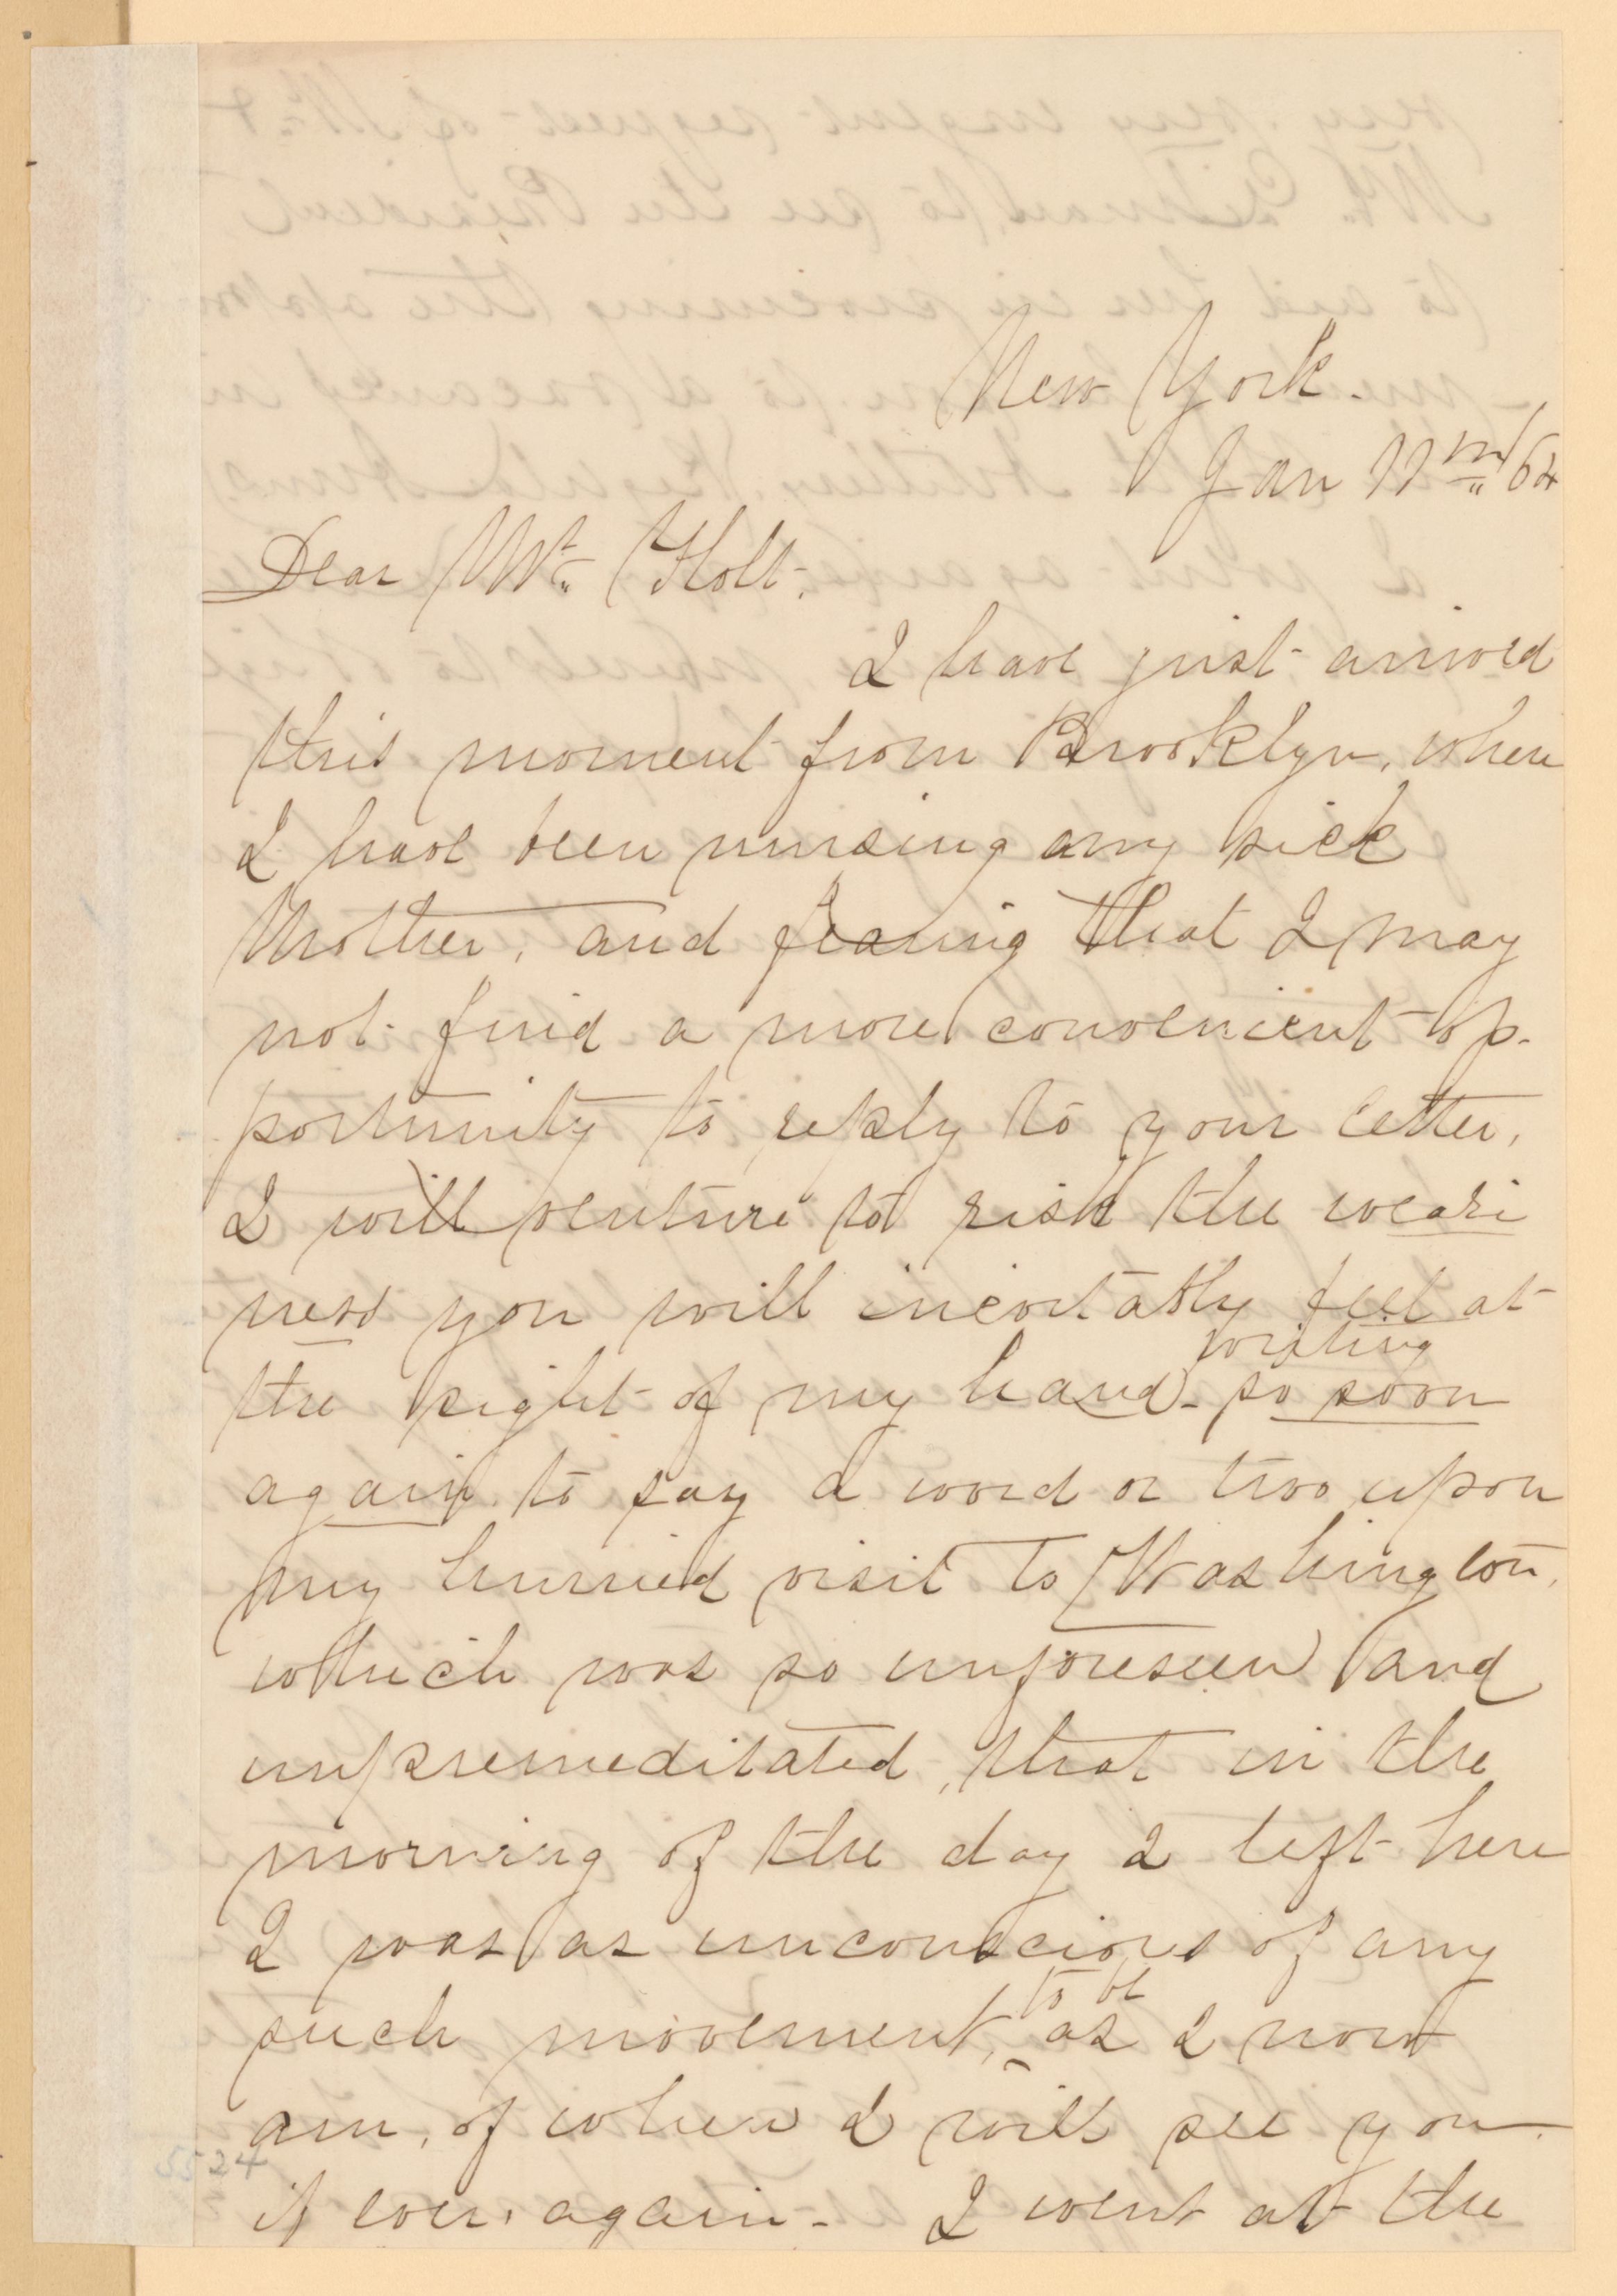 New York.
Jan 11th/64
Dear Mr. Holt,
I have just arrived
this moment from Brooklyn, where
I have been nursing my sick
Mother, and fearing that I may
not find a more convenient op-
portunity to reply to your letter,
I will venture to risk the weari
ness you will inevitably feel at
writing
the sight of my hand- so soon
again to say a word or two upon
my hurried visit to Washington,
which was so unforeseen and
unpremeditated, that in the
morning of the day I left here
I was as unconscious of any
to be
such movement, as I now
am, of when I will see you
if ever, again - I went at the
5524